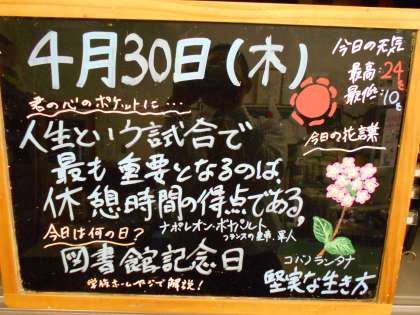 4月30日(木)
今日の天気
最高:24℃
最低:10℃
君の心のポケットに…
人生という試合で
最も重要となるのは、
休憩時間の得点である。
ナポレオン・ボナパルト
フランスの皇帝、軍人
今日は何の日?
図書館記念日
学校ホームページで解説!
今日の花言葉
コバノランタナ
堅実な生き方